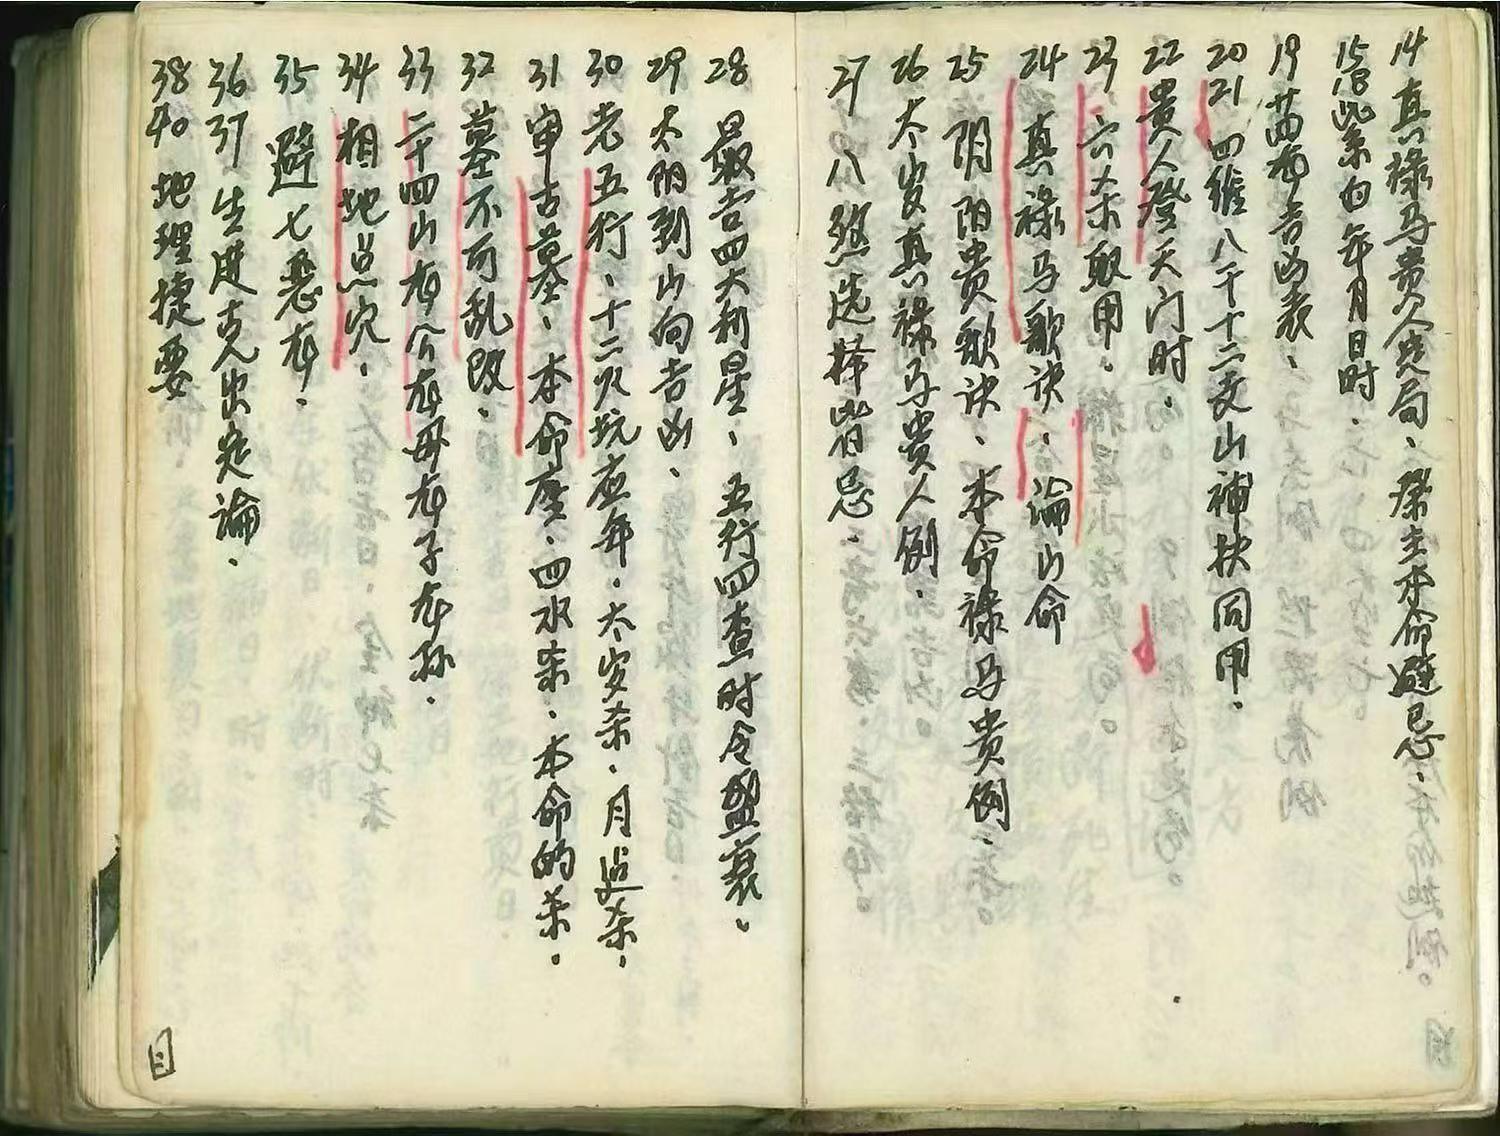 14 真禄马贵人定局、祭主本命避忌.
15 18 紫白年月日时.
19 黄龙吉凶表、
20 21 四维八干十二支山補扶同用.
22 贵人登天门时.
23 六杀取用.
24 真禄马歌诀、論山命
25 阴阳贵歌诀、本命禄马贵例.
26 太岁真禄马贵人例.
27 八煞选择皆忌.
28 最吉四大利星、五行四查时令盛衰.
29 太阴到山向吉凶、
30 老五行、十二穴坑应年.太安杀.月逆杀.
31 审古墓、本命座.四水杀.本命的杀.
32 墓不可乱改.
33 二十四山龙公龙母龙子龙孙.
34 相地点穴.
35 避七恶龙.
36 37 生进克出定論.
38 40 地理捷要
目